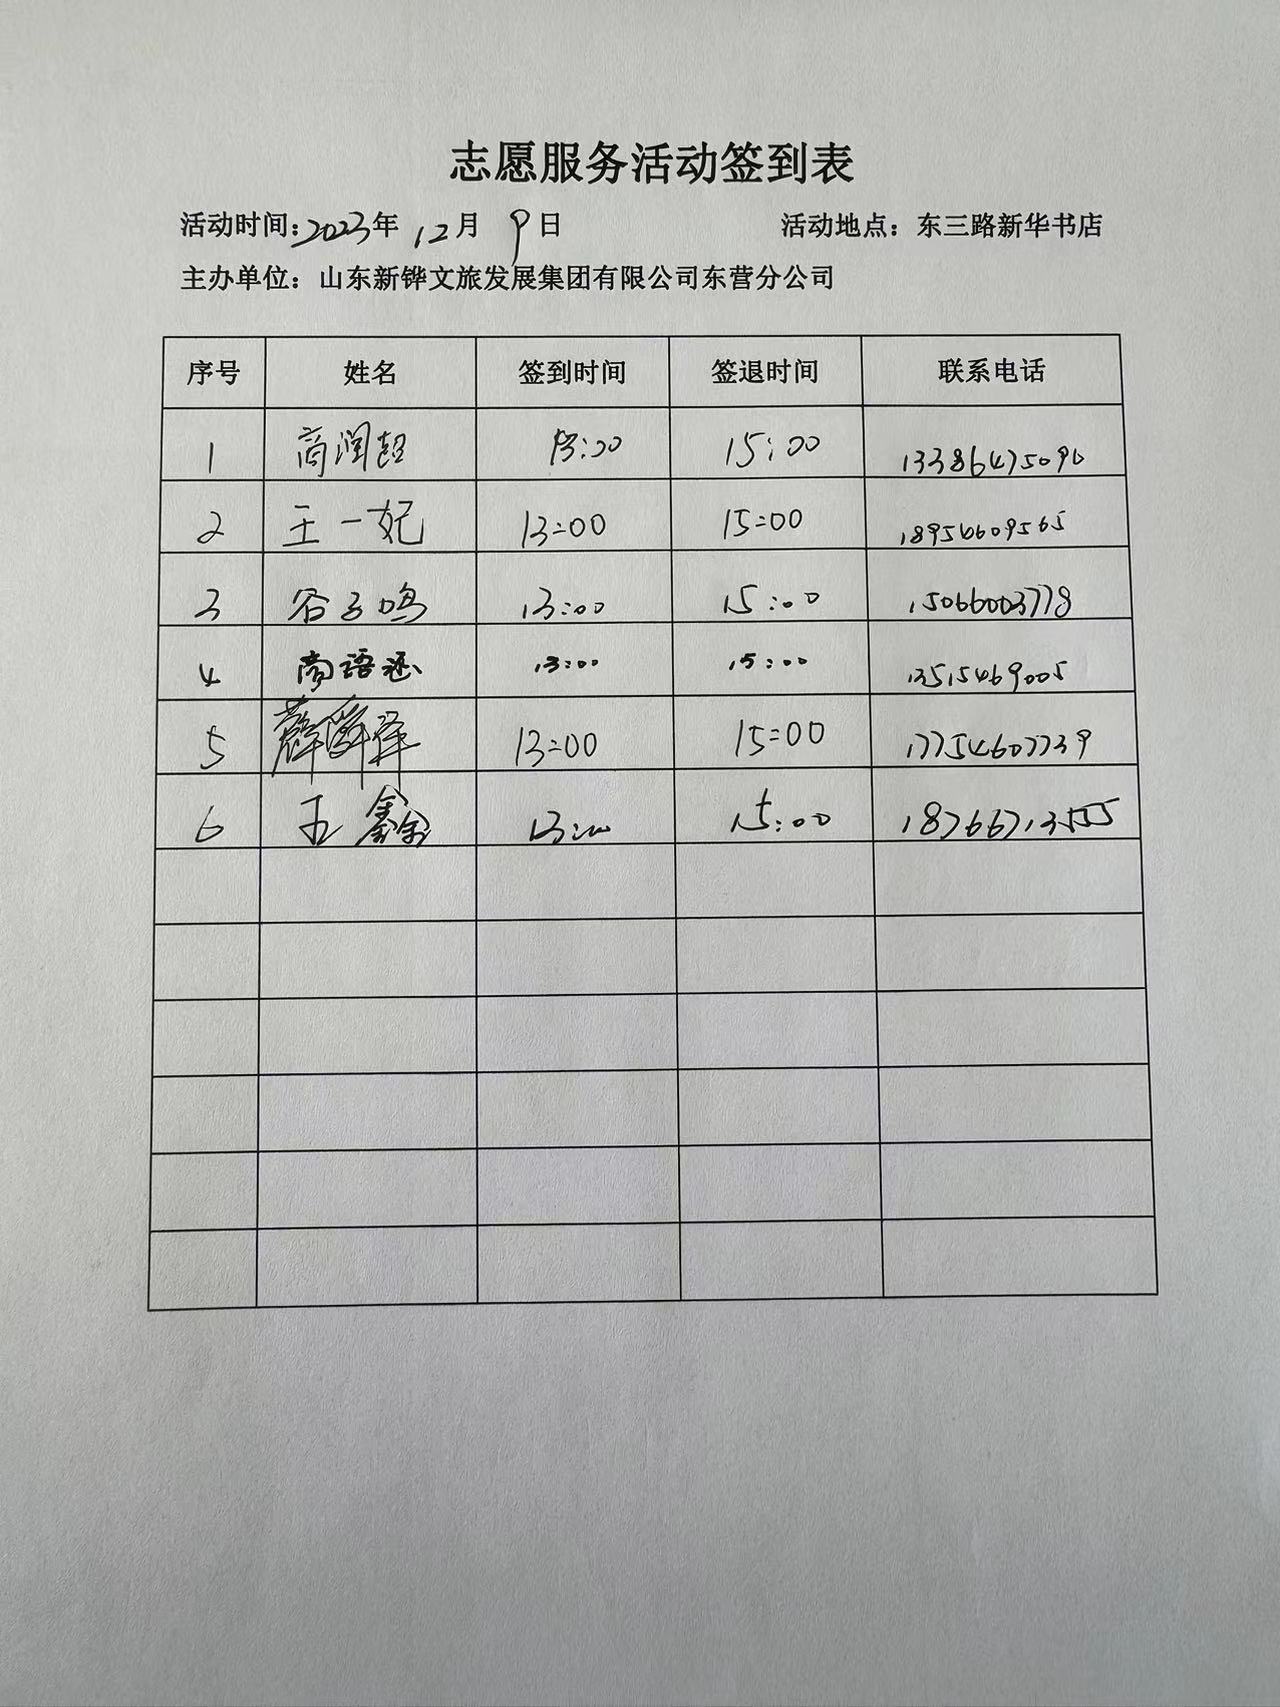 志愿服务活动签到表
活动时间：2023年 12月 9日 活动地点：东三路新华书店
主办单位：山东新铧文旅发展集团有限公司东营分公司
序号 姓名 签到时间 签退时间 联系电话
1 商润超 13:00 15:00 13386475090
2 王一妃 13:00 15:00 18954609565
3 谷子鸣 13:00 15:00 15066003778
4 商语还 13:00 15:00 13515469005
5 薛舜泽 13:00 15:00 17754607739
6 王鑫 13:00 15:00 18766713555